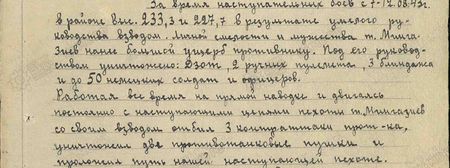 За время наступательных боев с 7-12.08.43г.
в районе выс. 233,3 и 227,7 в результате умелого ру-
ководства взводом. Личной смелости и мужества т. Минга-
зиев нанес большой ущерб противнику. Под его руковод-
ством уничтожено: Дзот, 2 ручных пулемета, 3 блиндажа
и до 50 немецких солдат и офицеров.
Работая все время на прямой наводке и двигаясь
постоянно с наступающими цепями пехоты т. Мингазиев
со своим взводом отбил 3 контратаки прот-ка,
уничтожил две противотанковые пушки и
проложил путь нашей наступающей пехоте.